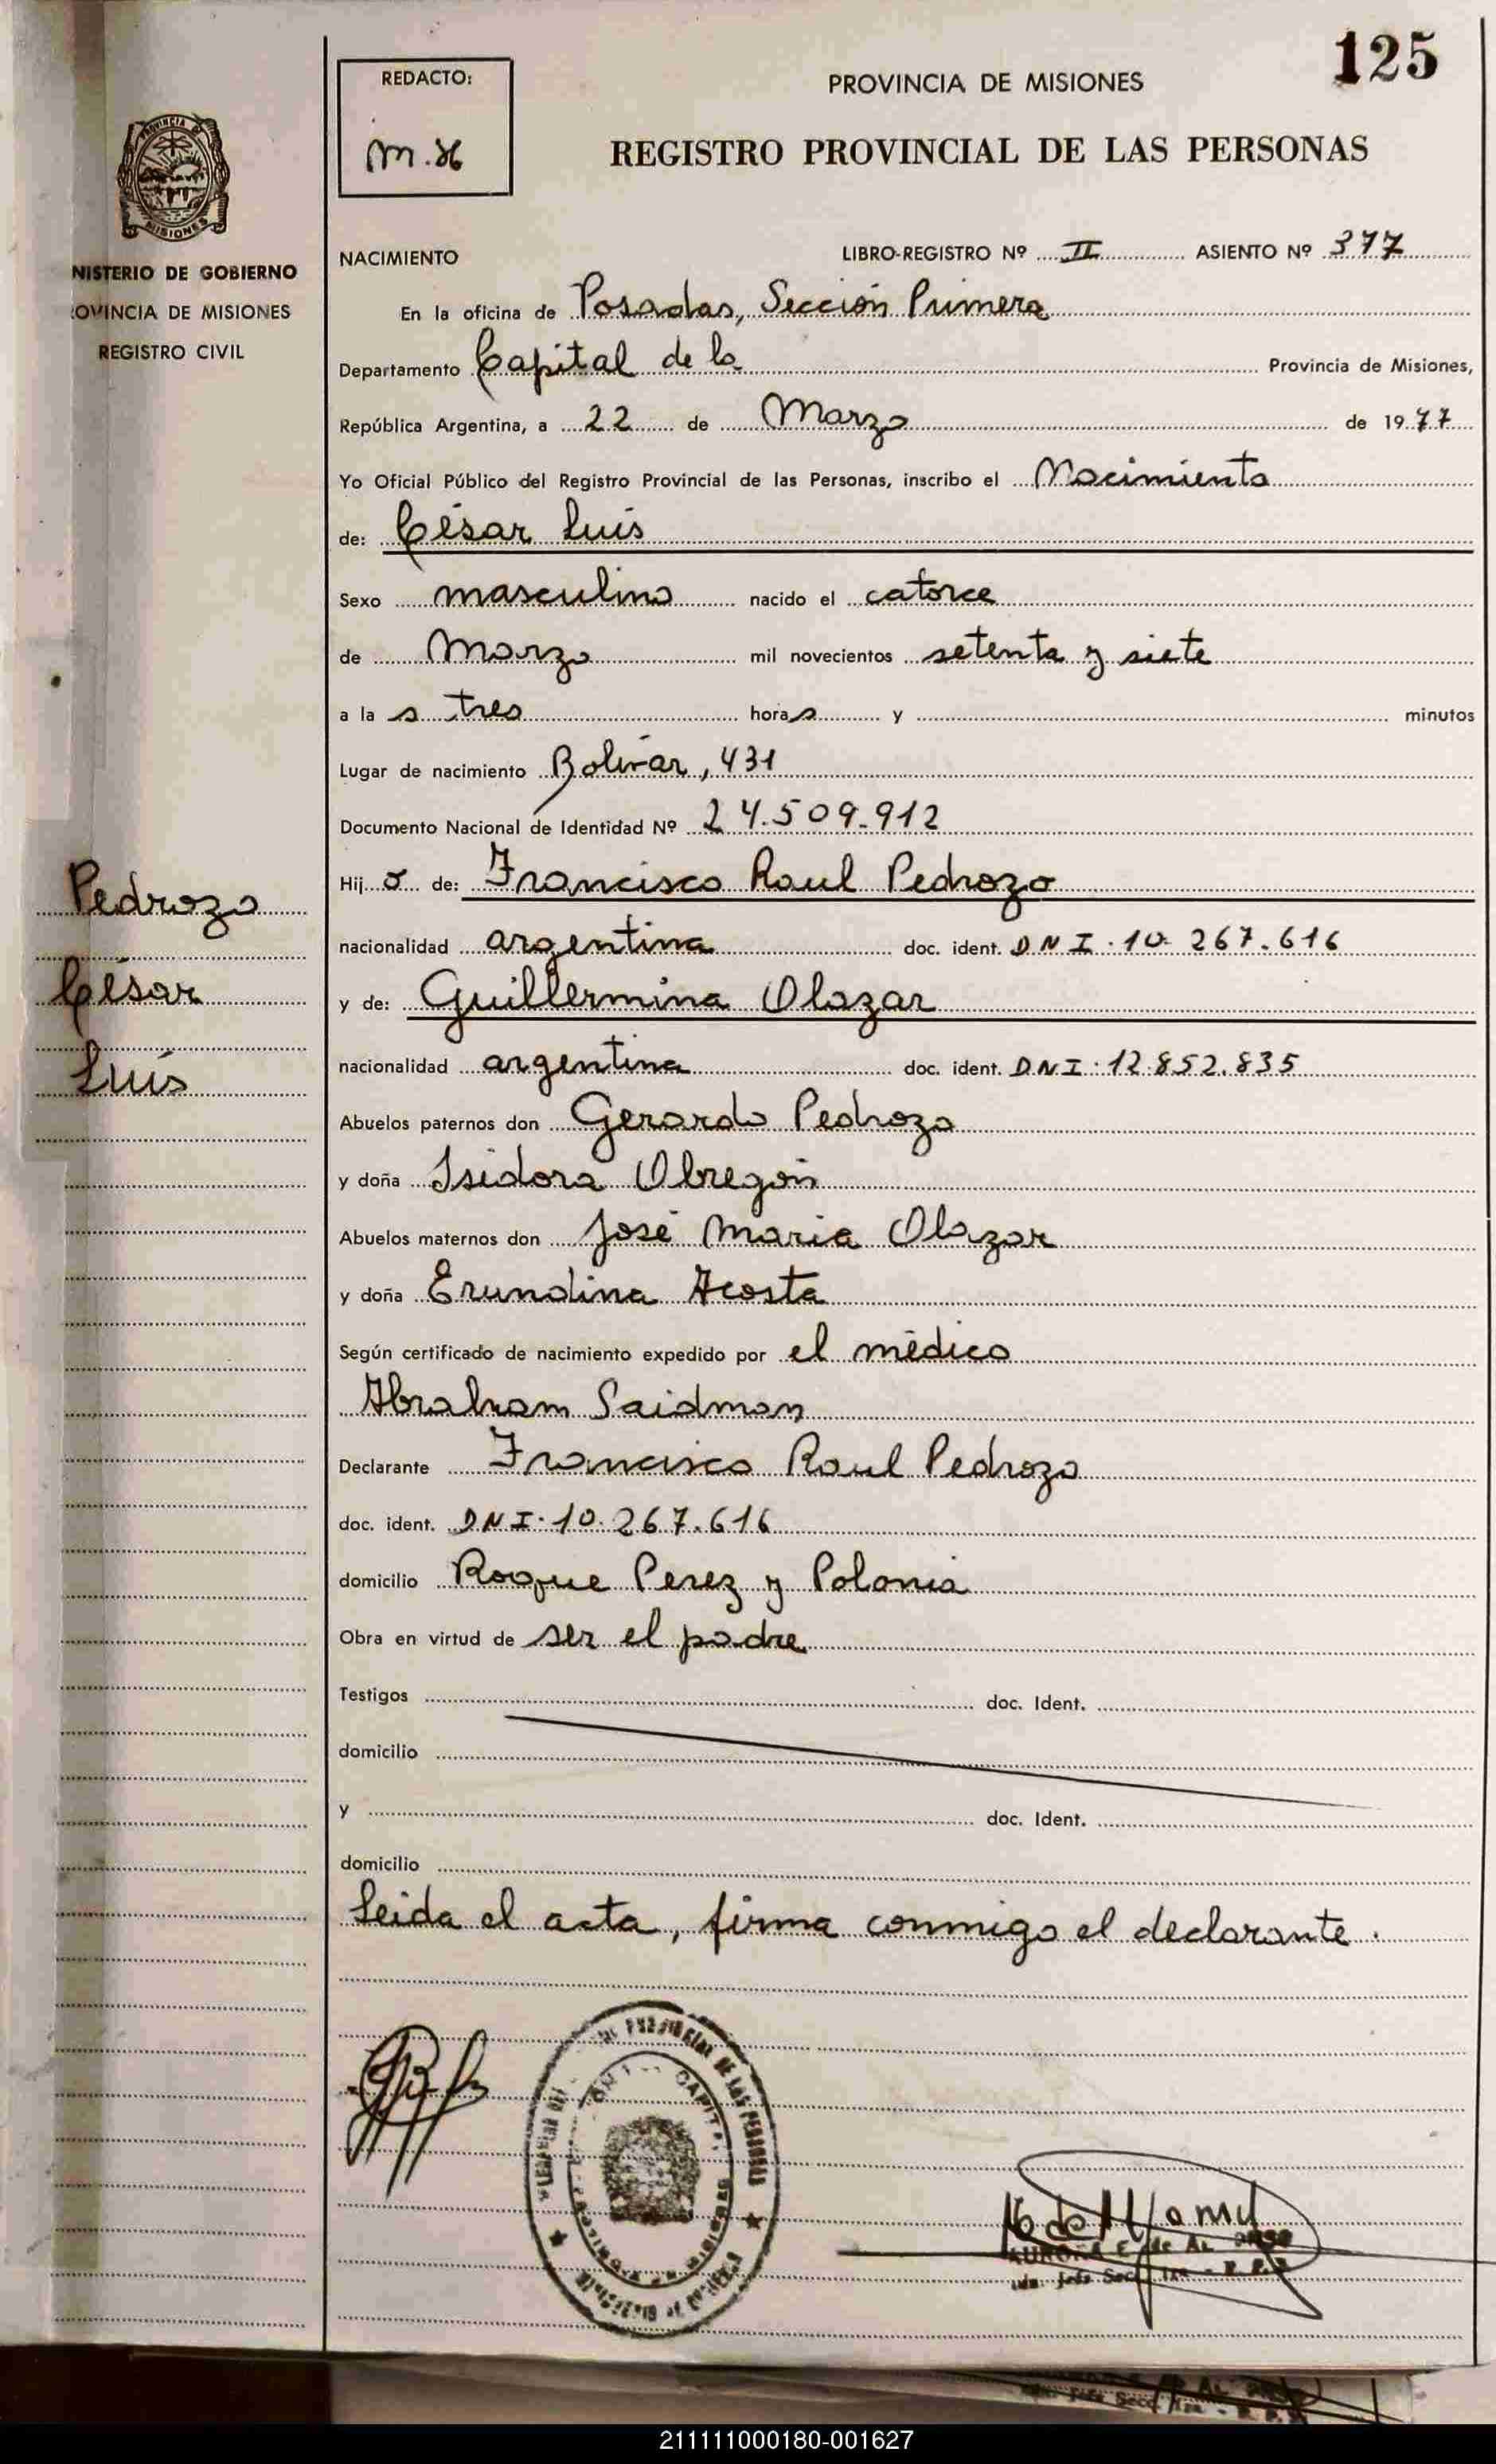 125
REDACTO:
M.H
PROVINCIA DE MISIONES
REGISTRO PROVINCIAL DE LAS PERSONAS
PROVINCIA DE
MISIONES
NISTERIO DE GOBIERNO
OVINCIA DE MISIONES
REGISTRO CIVIL
NACIMIENTO LIBRO-REGISTRO Nº II ASIENTO Nº 377
En la oficina de Posadas, Sección Primera
Departamento Capital de la Provincia de Misiones,
República Argentina, a 22 de Marzo de 1977
Yo Oficial Público del Registro Provincial de las Personas, inscribo el Nacimiento
de: César Luís
Sexo masculino nacido el catorce
de Marzo mil novecientos setenta y siete
a la s tres horas y minutos
Lugar de nacimiento Bolívar, 431
Documento Nacional de Identidad Nº 24.509.912
Hij o de: Francisco Raul Pedrozo
nacionalidad argentina doc. ident. DNI. 10.267.616
y de: Guillermina Olazar
nacionalidad argentina doc. ident. DNI. 12.852.835
Abuelos paternos don Gerardo Pedrozo
y doña Isidora Obregón
Abuelos maternos don José Maria Olazar
y doña Erundina Acosta
Según certificado de nacimiento expedido por el médico
Abraham Saidman
Declarante Francisco Raul Pedrozo
doc. ident. DNI. 10.267.616
domicilio Roque Perez y Polonia
Obra en virtud de ser el padre
Testigos doc. Ident.
domicilio
y doc. Ident.
domicilio
Leida el acta, firma conmigo el declarante.
Pedrozo
César
Luís
DE LAS PERSONAS
AURORA E. de AL
Jefe Secc. 1ra - R. P. P.
211111000180-001627